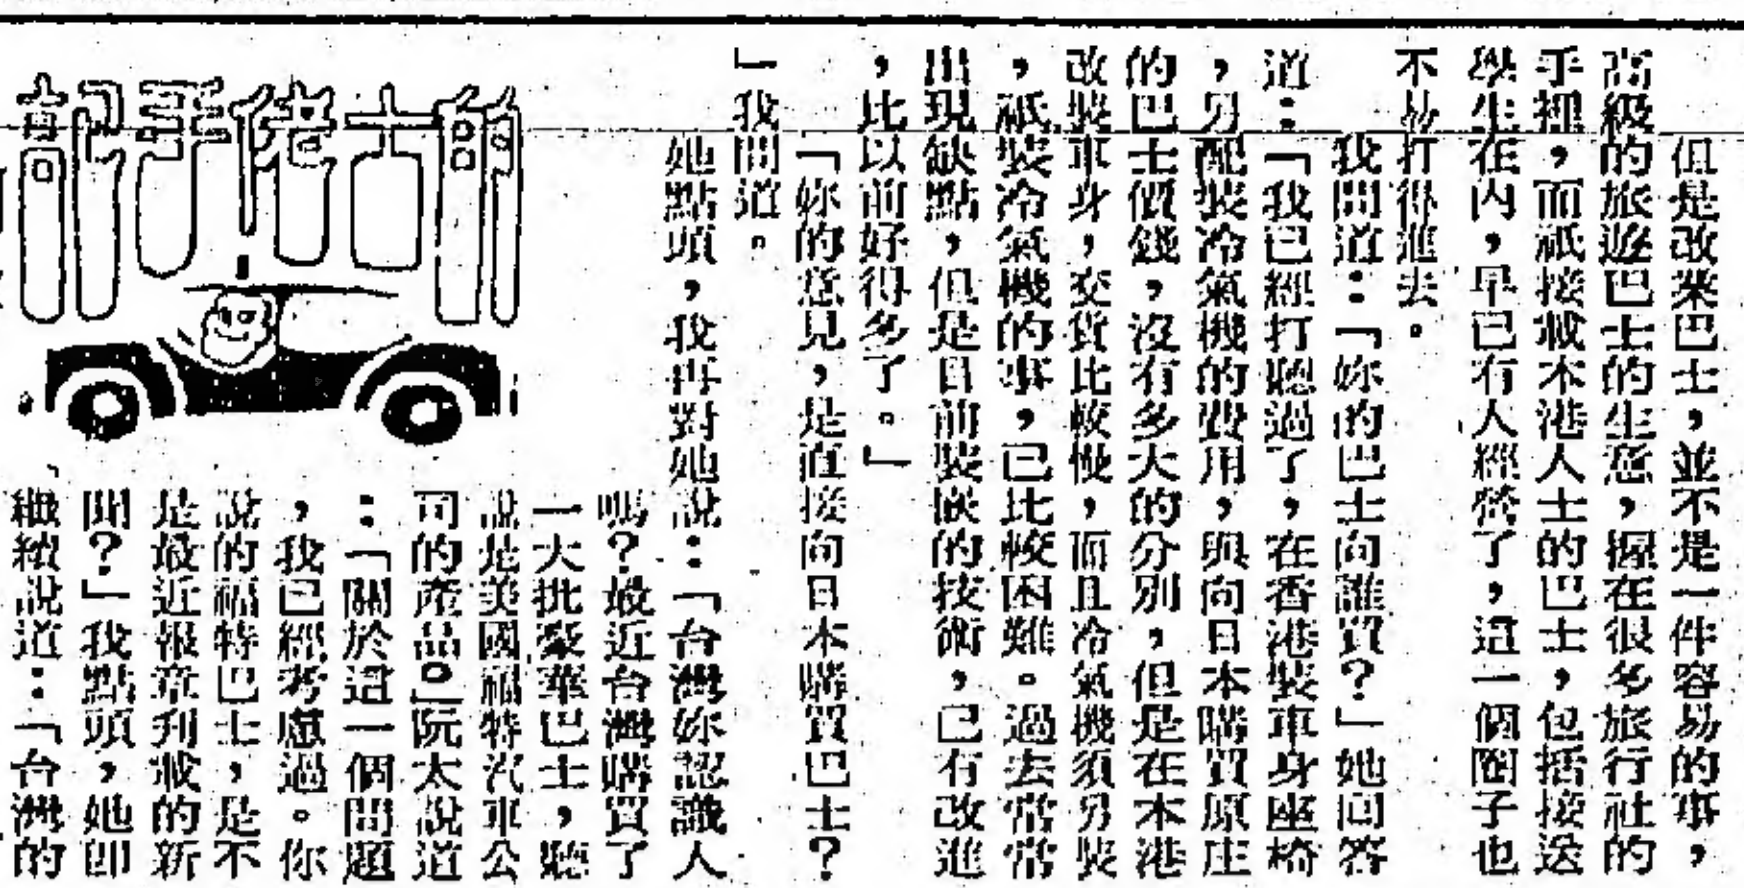 但是改業巴士，並不是一件容易的事，
高級的旅遊巴士的生意，握在很多旅行社的
手裡，而祇接載本港人士的巴士，包括接送
學生在內，早已有人經營了，這一個圈子也
不易打得進去。
我問道：「妳的巴士向誰買？」她回答
道：「我已經打聽過了，在香港裝車身座椅
，另配裝冷氣機的費用，與向日本購買原庄
的巴士價錢，沒有多大的分別，但是在本港
改裝車身，交貨比較慢，而且冷氣機須另裝
，祇裝冷氣機的事，已比較困難。過去常常
出現缺點，但是目前裝嵌的技術，已有改進
，比以前好得多了。」
「妳的意見，是直接向日本購買巴士？
」我問道。
她點頭，我再對她說：「台灣妳認識人
嗎？最近台灣購買了
一大批豪華巴士，聽
說是美國福特汽車公
司的產品。」阮太說道
：「關於這一個問題
，我已經考慮過。你
說的福特巴士，是不
是最近報章刋載的新
聞？」我點頭，她卽
繼續說道：「台灣的
的士佬手記